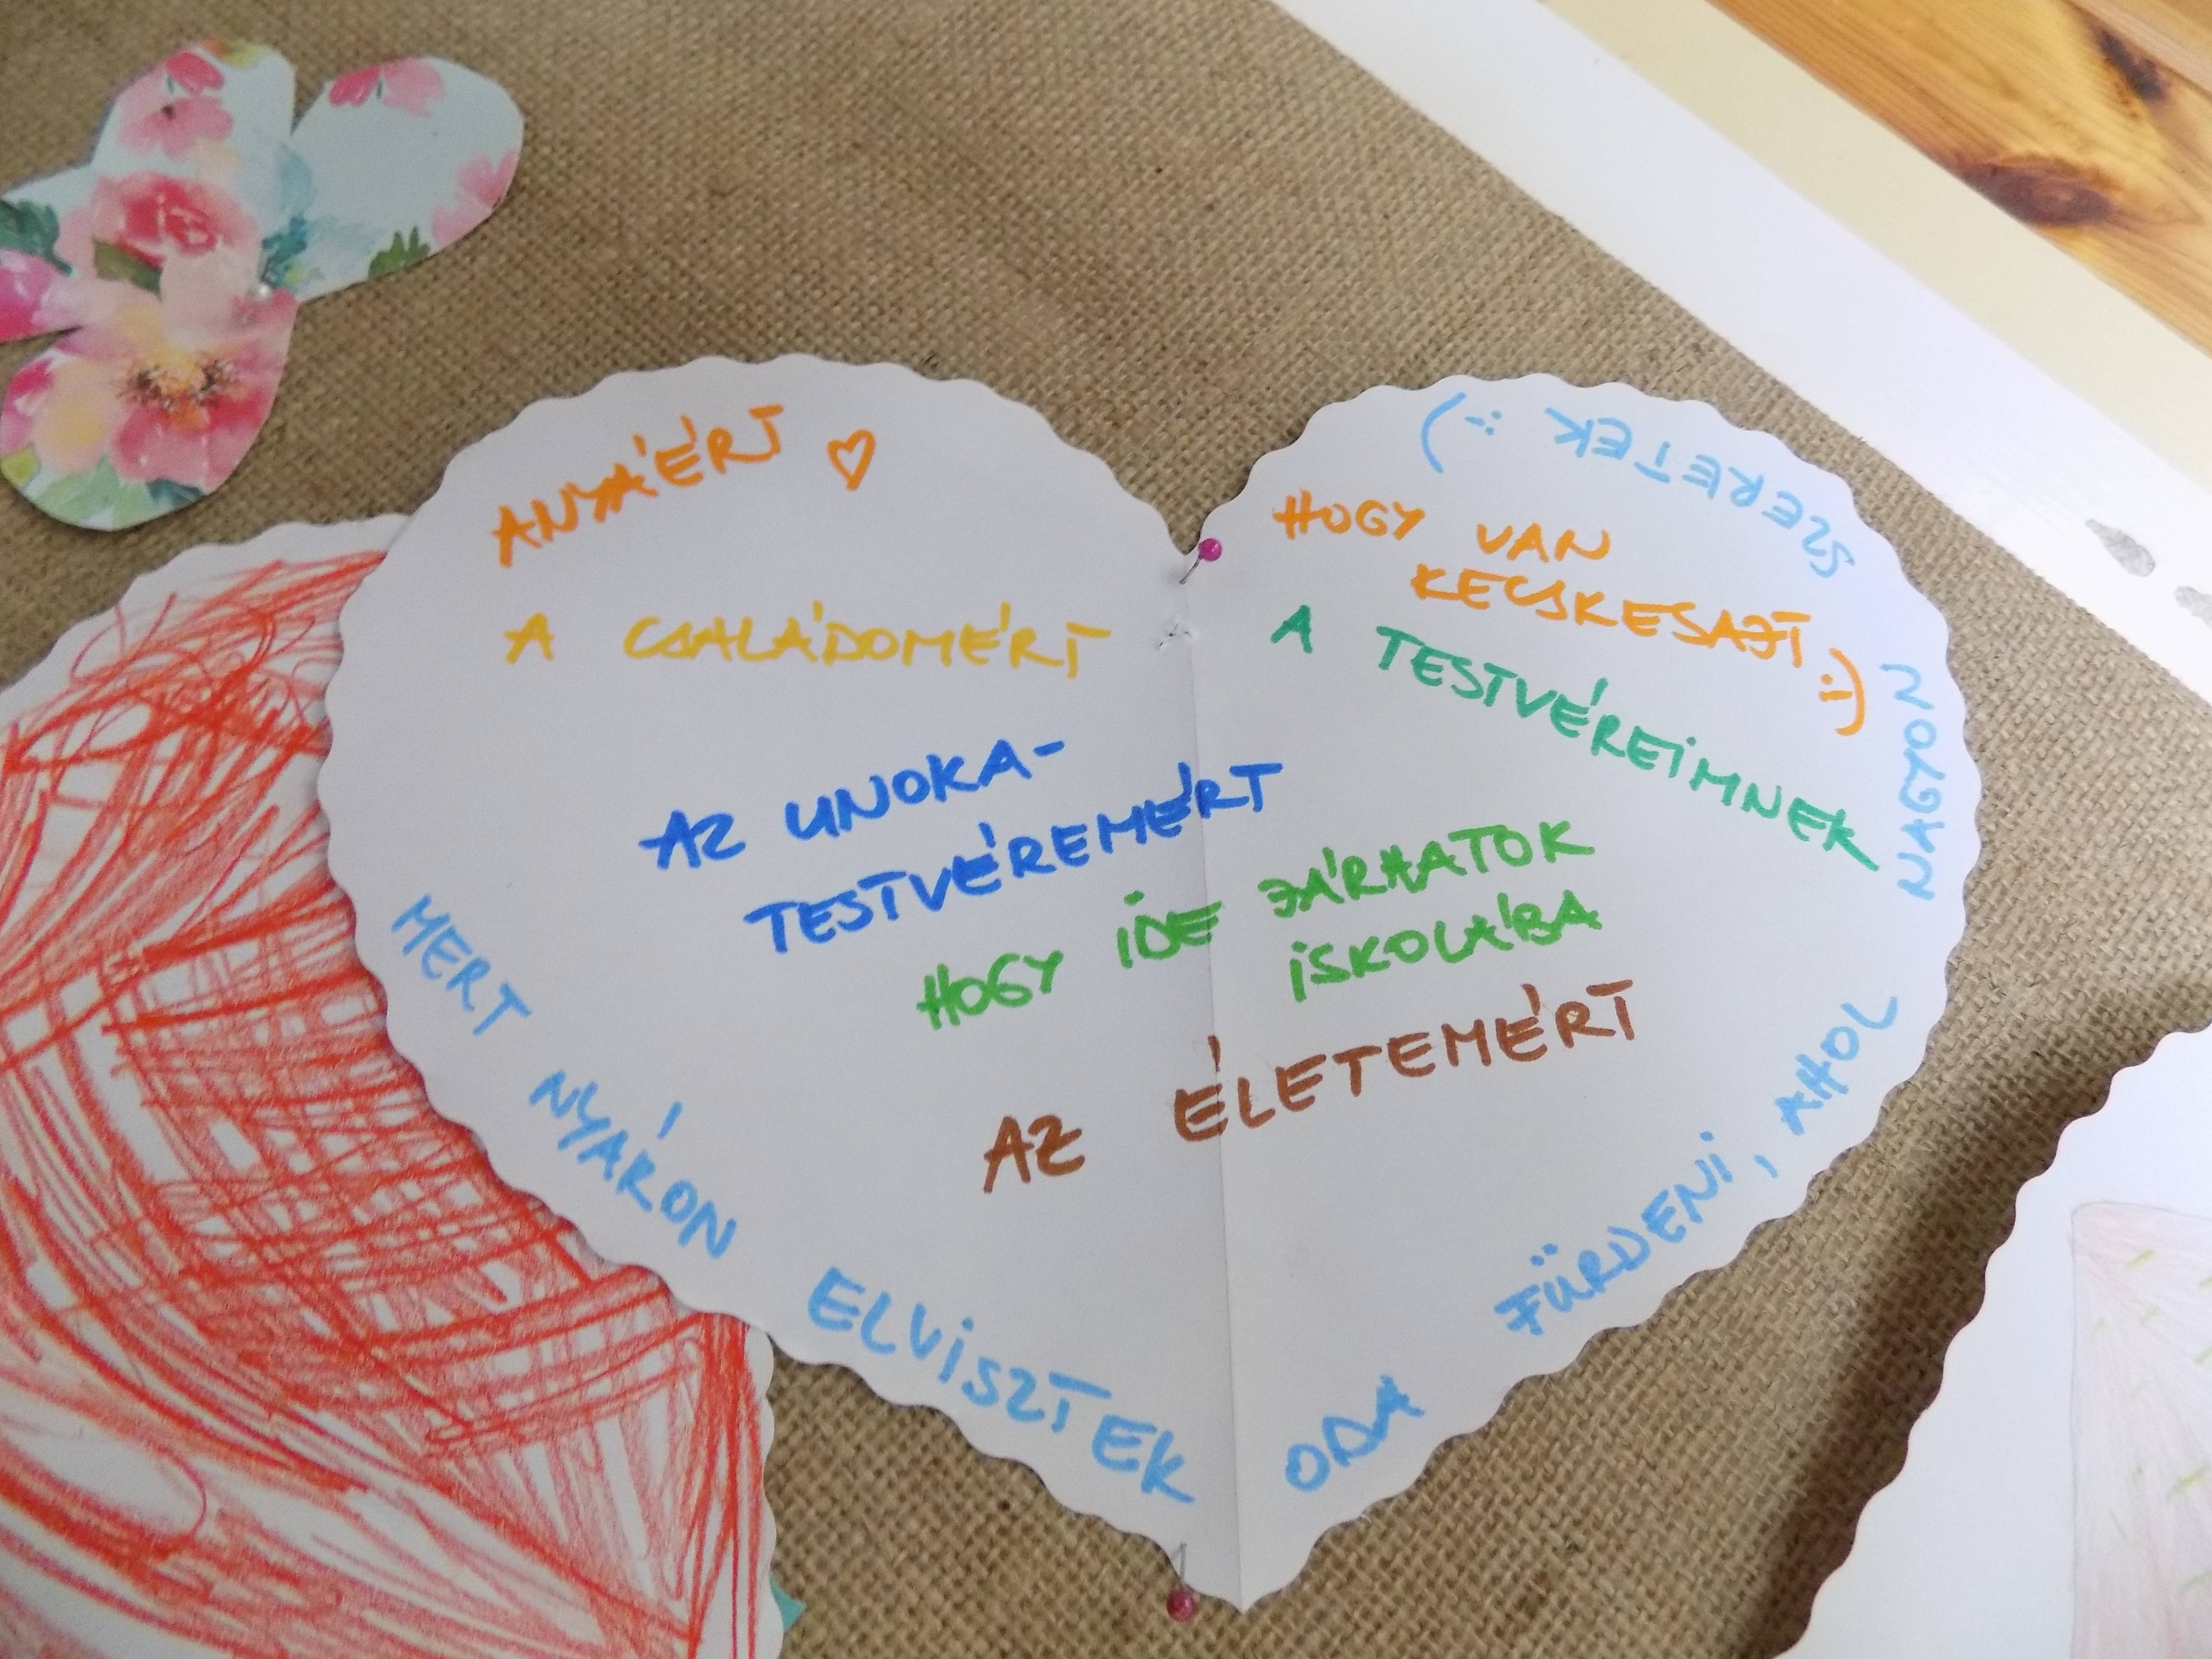 ANYÁÉRT ♡
A CSALÁDOMÉRT
AZ UNOKA-
TESTVÉREMÉRT
HOGY VAN
KECSKESAJT :)
A TESTVÉREIMNEK
HOGY IDE JÁRHATOK
ISKOLÁBA
AZ ÉLETEMÉRT
MERT NYÁRON ELVISZTEK ODA FÜRDENI, AHOL NAGYON SZERETEK :)